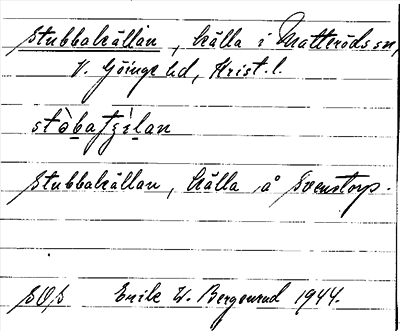 Stubbakällan, källa i Matteröds sn,
V. Göinge hd, Krist. l.
stòbaʃɛ̀lan
Stubbakällan, källa å Svenstorp.
SOS Erik W. Bergenrud 1944.